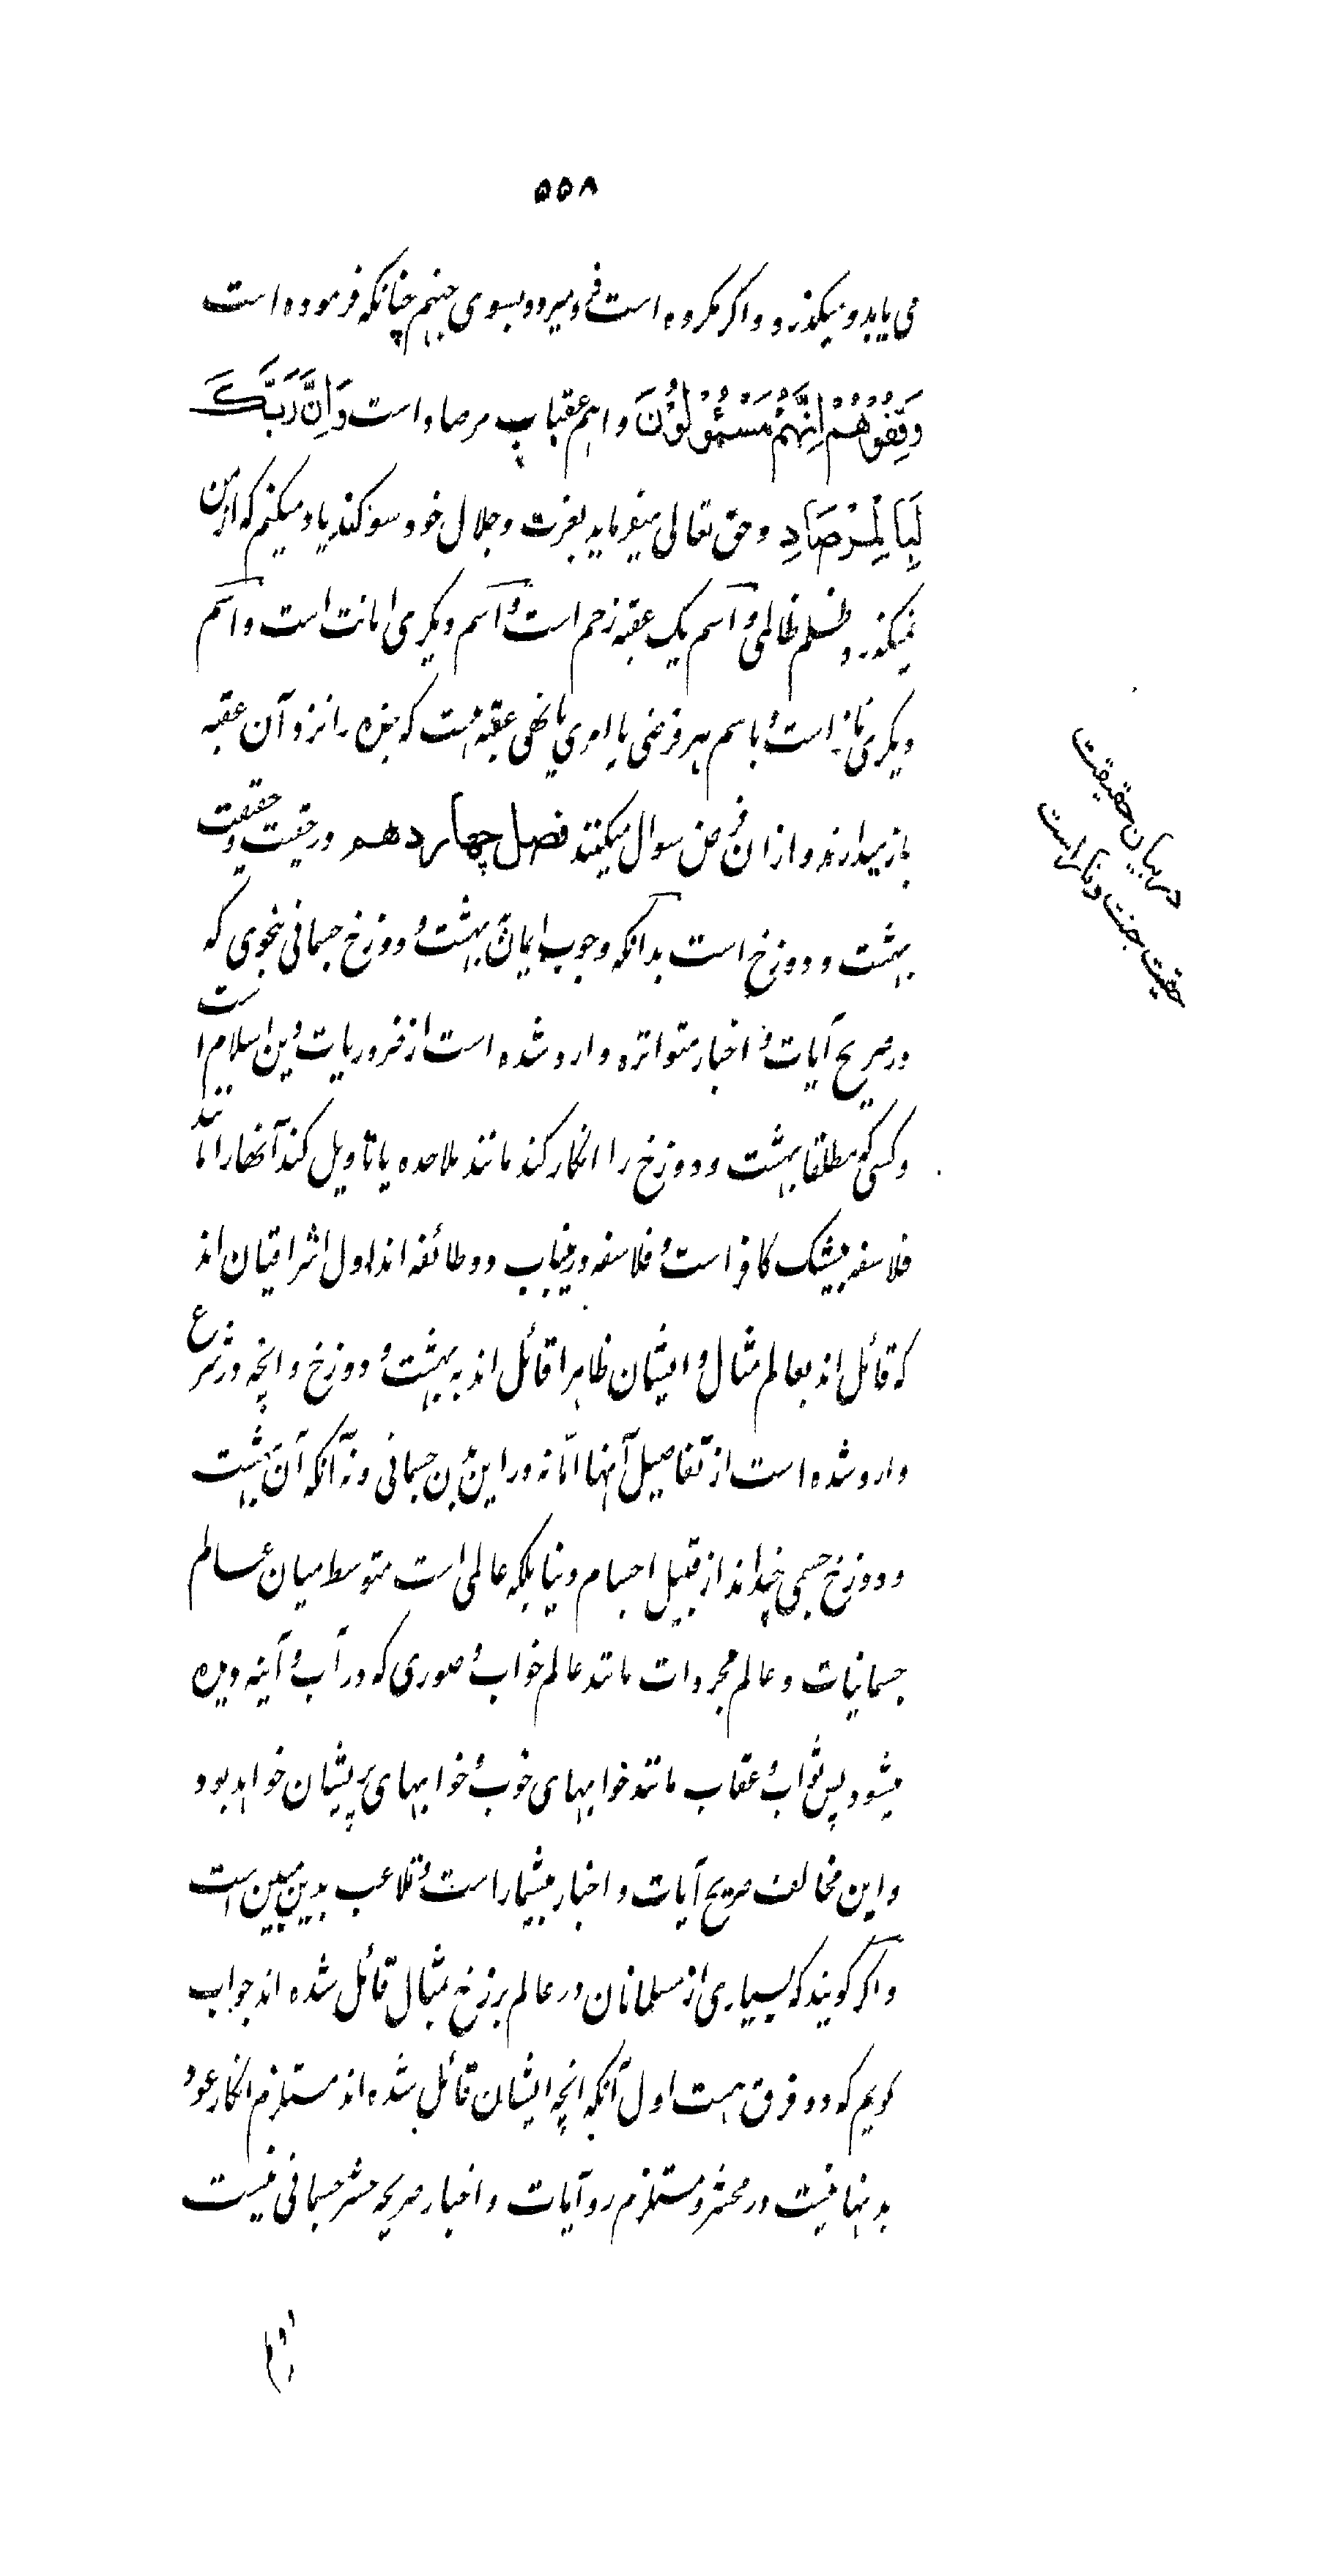 ۵۵۸
می یابد و میکذرد و اکر مکروه است فرو میرود بسوی جهنم چنانکه فرموده است
وَقِفُوْهُمْ اِنَّهُمْ مَسْئُوْلُوْنَ و اهم عقبات مرصاد است وَاِنَّ رَبَّكَ
لَبِالْمِرْصَادِ و حق تعالی میفرماید بعزت و جلال خود سوکند یاد میکنم که از من
نمیکذرد ظلم ظالمی و آسم یک عقبه رحم است و آسم دیکری امانت است و آسم
دیکری نماز است و باسم هر فرضی یا امری یا نهی عقبه هست که بنده را نزد آن عقبه
باز میدارند و از ان فرض سوال میکنند فصل چهاردهم در حقیت و حقیقت
بهشت و دوزخ است بدآنکه وجوب ایمان ببهشت و دوزخ جسمانی بنحوی که
در صریح آیات و اخبار متواتره وارد شده است از ضروریات دین اسلام است
و کسی که مطلقا بهشت و دوزخ را انکار کند مانند ملاحده یا تاویل کند آنها را مانند
فلاسفه بیشک کافر است و فلاسفه در ینباب دو طائفه اند اول اشراقیان اند
که قائل اند بعالم مثال و ایشان ظاهرا قائل اند به بهشت و دوزخ و انچه در شرع
وارد شده است از تفاصیل آنها امّا نه در این بدن جسمانی و نه آنکه آن بهشت
و دوزخ جسمی چند اند از قبیل اجسام دنیا بلکه عالمی است متوسط میان عالم
جسمانیات و عالم مجردات مانند عالم خواب و صوری که در آب و آینه دیده
میشود پس ثواب و عقاب مانند خوابهای خوب و خوابهای پریشان خواهد بود
و این مخالف صریح آیات و اخبار بیشمار است و تلاعب بدین مبین است
و اکر کویند که بسیاری از مسلمانان در عالم برزخ بمثال قائل شده اند جواب
کویم که دو فرق هست اول آنکه انچه ایشان قائل شده اند مستلزم انکار عود
بدنها نیست در محشر و مستلزم رد آیات و اخبار صریحه حشر جسمانی نیست
دویم
در بیان حقیقت
حقیت جنت و نار است